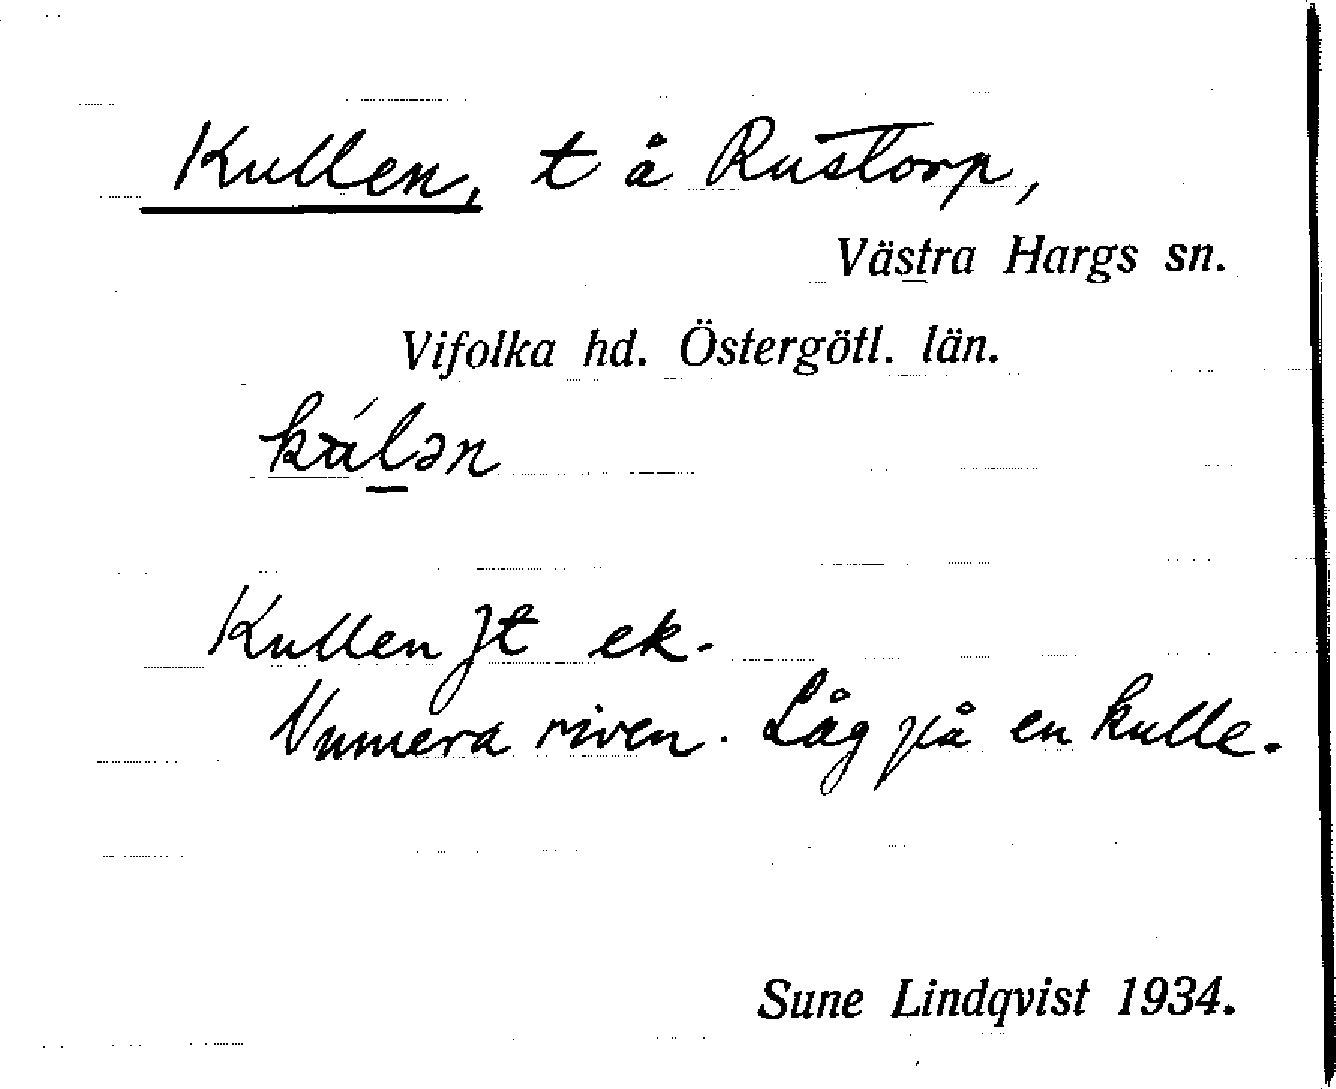 Kullen, t å Rustorp,
Västra Hargs sn.
Vifolka hd. Östergötl. län.
Kullen ft ek.
Numera riven. Låg på en kulle.
Sune Lindqvist 1934.